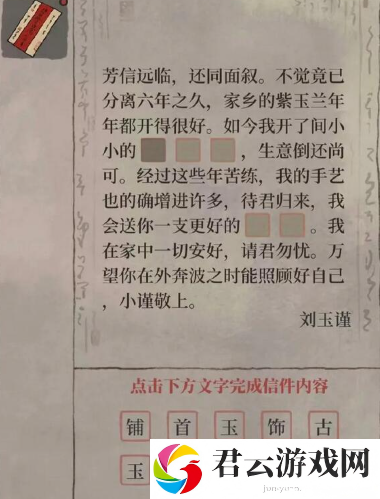 芳信远临，还同面叙。不觉竟已
分离六年之久，家乡的紫玉兰年
年都开得很好。如今我开了间小
小的，生意倒还尚
可。经过这些年苦练，我的手艺
也的确增进许多，待君归来，我
会送你一支更好的。我
在家中一切安好，请君勿忧。万
望你在外奔波之时能照顾好自己
，小谨敬上。
刘玉谨
点击下方文字完成信件内容
铺 首 玉 饰 古
玉
君云游戏网